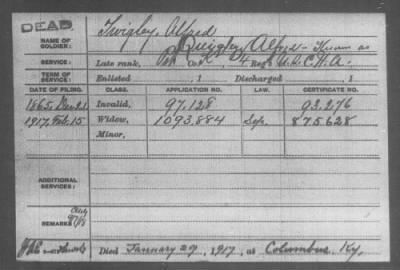 DEAD.
NAME OF SOLDIER:
Twigley, Alfred
Quigley, Alfred - Known as
SERVICE:
Late rank, Pvt Co. K, 4 Reg't U.S.C.H.A.
TERM OF SERVICE:
Enlisted , 1 Discharged , 1
DATE OF FILING. CLASS. APPLICATION NO. LAW. CERTIFICATE NO.
1865, Dec 21 Invalid, 97.128 93.276
1917, Feb. 15 Widow, 1093.884 Sep. 875628
Minor,
ADDITIONAL SERVICES:
REMARKS:
Died January 29, 1917, at Columbus Ky.